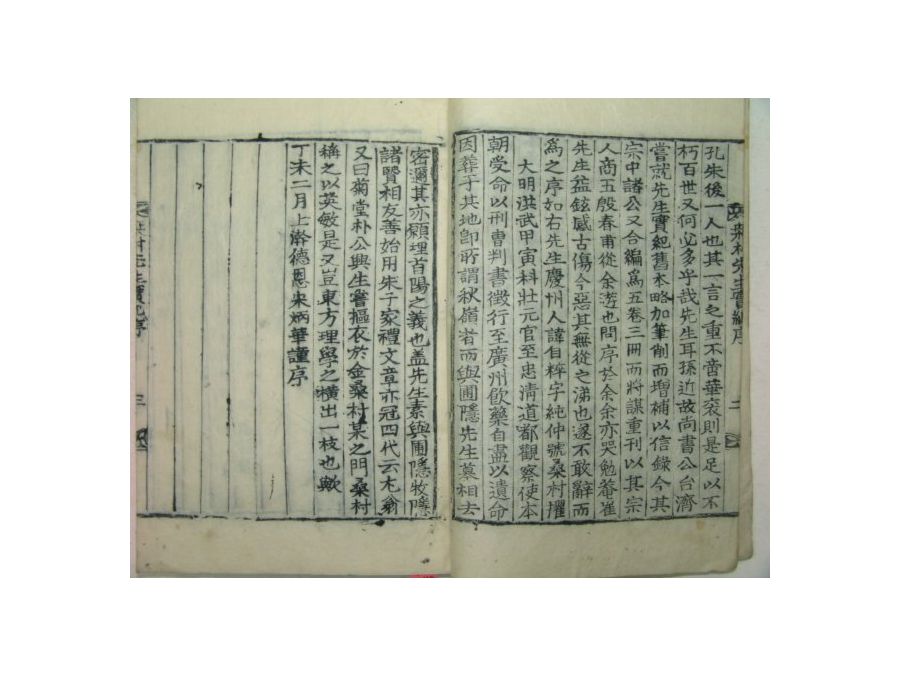 孔朱後一人也其一言之重不啻華袞則是足以不
朽百世又何必多乎哉先生耳孫近故尚書公台濟
嘗就先生實紀舊本略加筆削而增補以信錄今其
宗中諸公又合編爲五卷三冊而將謀重刊以其宗
人商五殷春甫從余遊也問序於余余亦哭勉菴崔
先生益鉉感古傷今惡其無從之涕也遂不敢辭而
爲之序如右先生慶州人諱自粹字純仲號桑村擢
大明洪武甲寅科壯元官至忠淸道都觀察使本
朝受命以刑曹判書徵行至廣州飮藥自盡以遺命
因葬于其地卽所謂秋嶺者而與圃隱先生墓相去
密邇其亦願埋首陽之義也盖先生素與圃隱牧隱
諸賢相友善始用朱子家禮文章亦冠四代云尤翁
又曰菊堂朴公興生嘗摳衣於金桑村某之門桑村
稱之以英敏是又豈東方理學之橫出一枝也歟
丁未二月上澣德恩宋炳華謹序
桑村先生實紀序
二
三